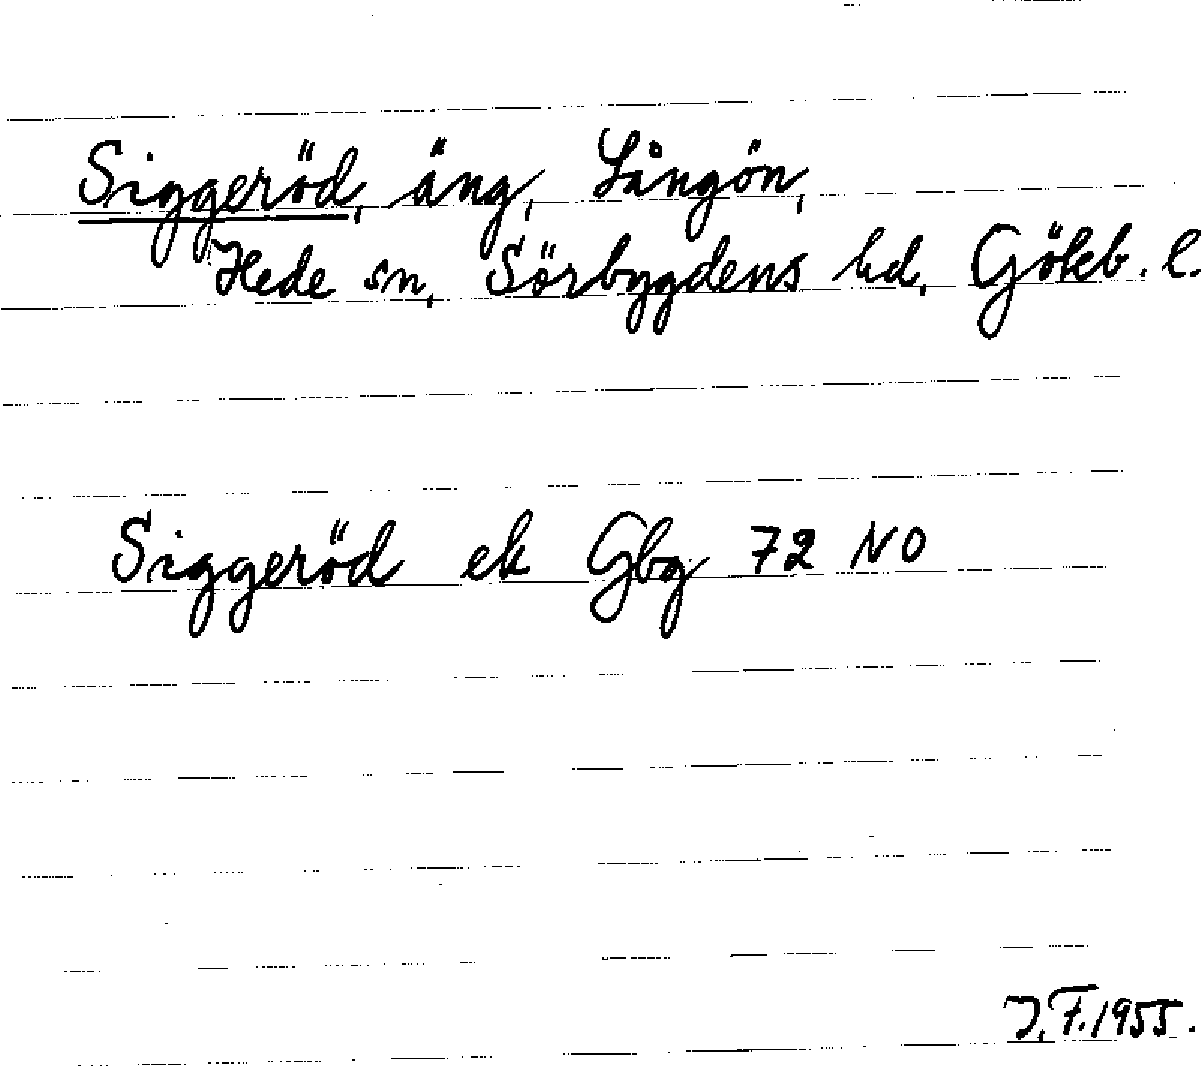 Siggeröd, äng, Långön,
Hede sn, Sörbygdens hd, Göteb. l.
Siggeröd ek Gbg 72 NO
J.F.1955.